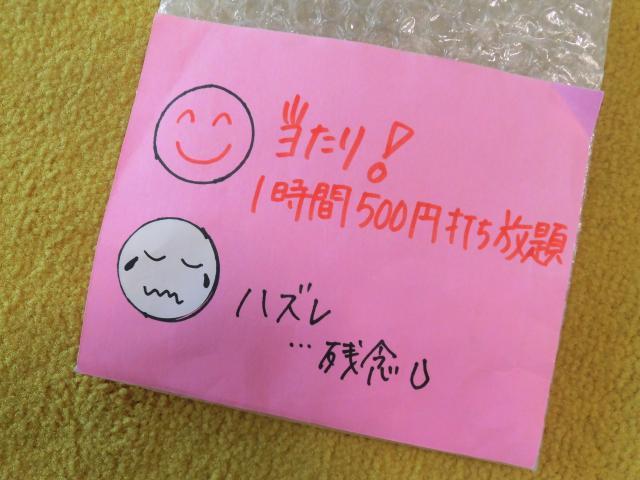 当たり!
1時間500円打ち放題
ハズレ
…残念